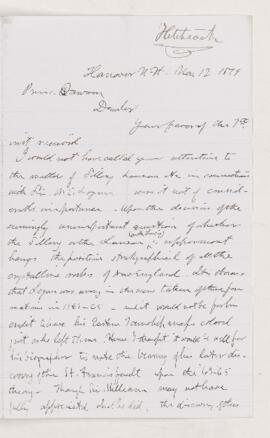 Hitchcock
Hanover N.H. Nov 12 1878
Princ. Dawson
Dear Sir
Your favor of the 7th
inst received
I would not have called your attention to
the matter of Sillery Lauzon &c in connection
with Sir W. E. Logan were it not of consid-
erable importance. Upon the decision of the
seemingly unimportant question of whether
the Sillery or the Lauzon is uppermost
hangs the position stratigraphical of all the
crystalline rocks of New England. It is obvious
that Logan was wrong in the view taken of the for-
mations in 1861-65 and it would not be for his
credit to have his Eastern Townships maps colored
just as he left them. Hence I thought it would be well for
his biographer to note the bearing of his later dis-
covery of the St. Francis fault upon the 1863-65
theory. Though Sir William may not have
fully appreciated the discovery